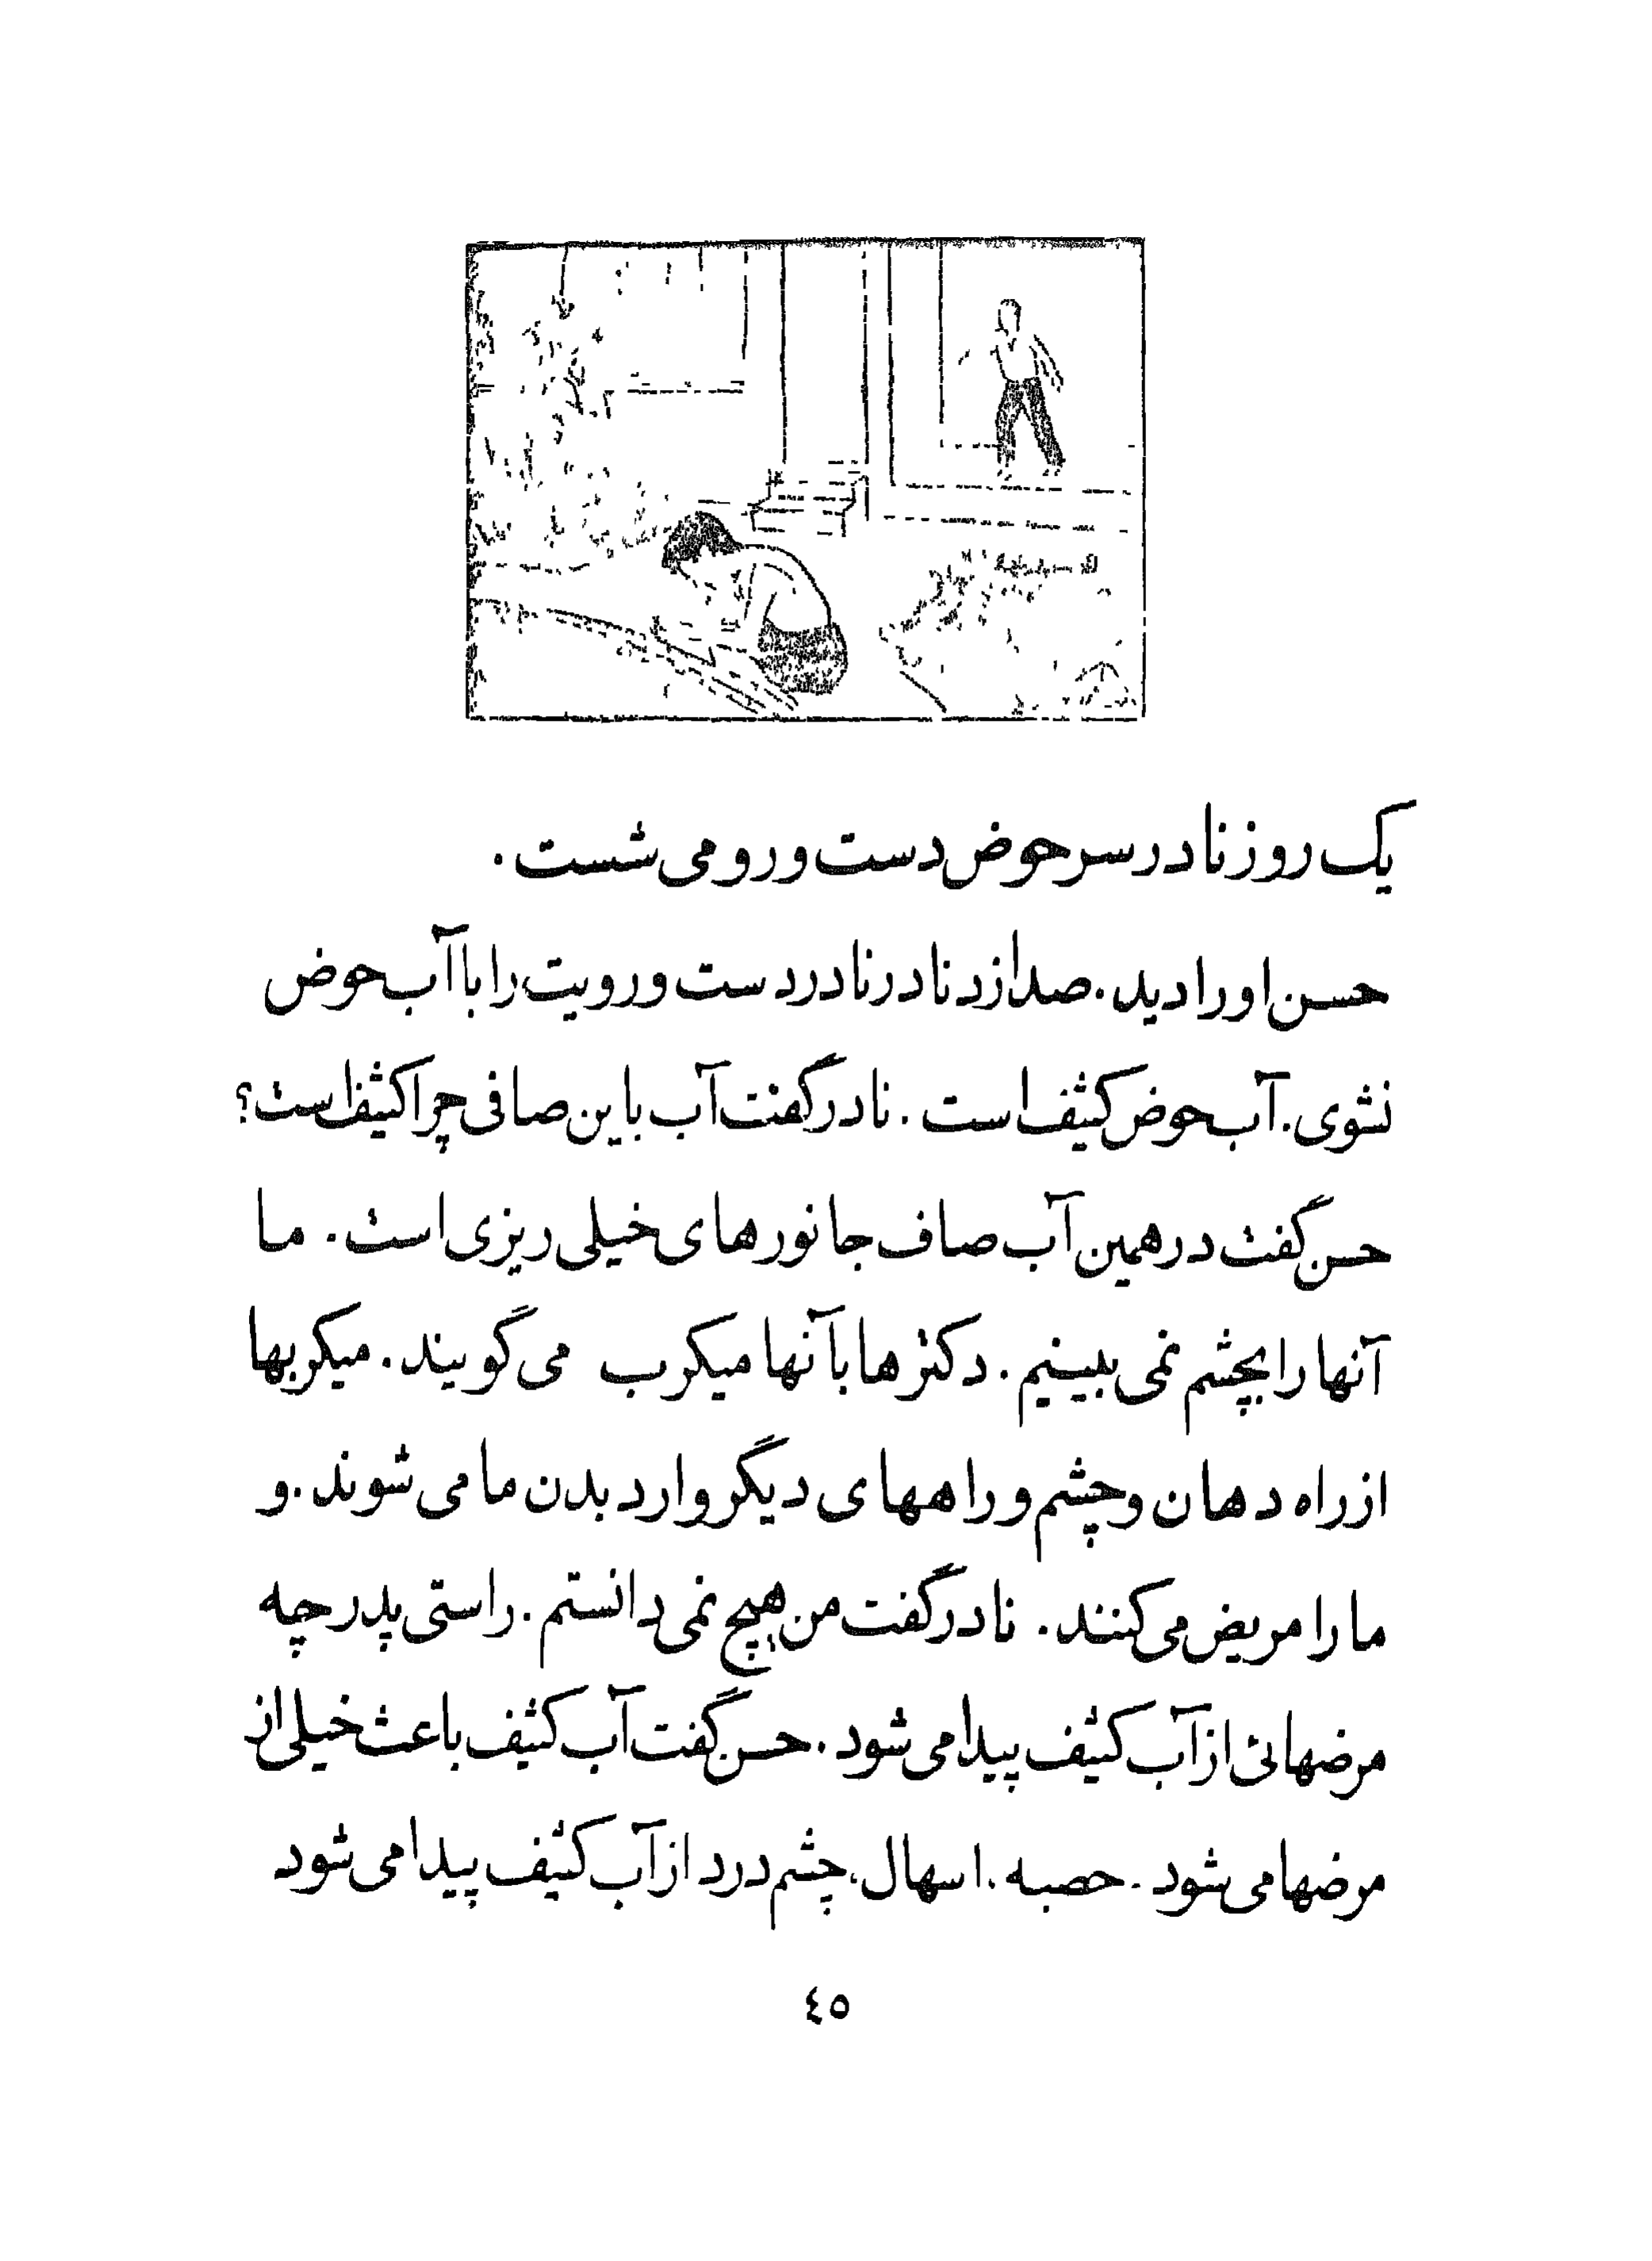 یک روز نادر سر حوض دست و رو می شست .
حسن او را دید . صدا زد نادر نادر دست و رویت را با آب حوض
نشوی . آب حوض کثیف است . نادر گفت آب باین صافی چرا کثیف است ؟
حسن گفت در همین آب صاف جانورهای خیلی ریزی است . ما
آنها را بچشم نمی بینیم . دکترها بآنها میکرب می گویند . میکربها
از راه دهان و چشم و راههای دیگر وارد بدن ما می شوند . و
ما را مریض می کنند . نادر گفت من هیچ نمی دانستم . راستی پدر چه
مرضهائی از آب کثیف پیدا می شود . حسن گفت آب کثیف باعث خیلی از
مرضها می شود . حصبه ، اسهال ، چشم درد از آب کثیف پیدا می شود
٤٥